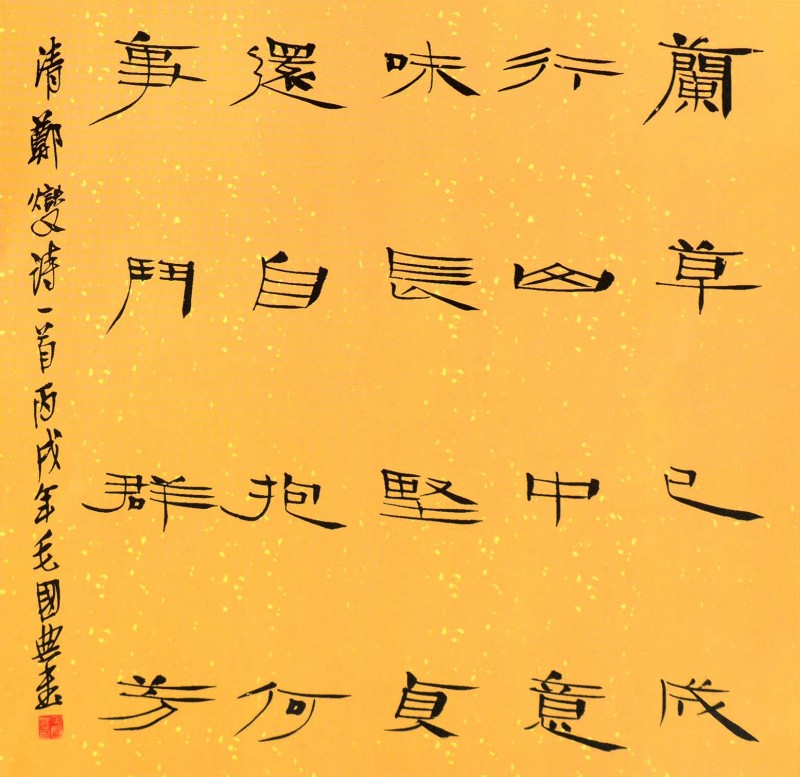 蘭草已成
行山中意
味長堅貞
還自抱何
事鬥群芳
清鄭燮诗一首丙戌年毛國典書